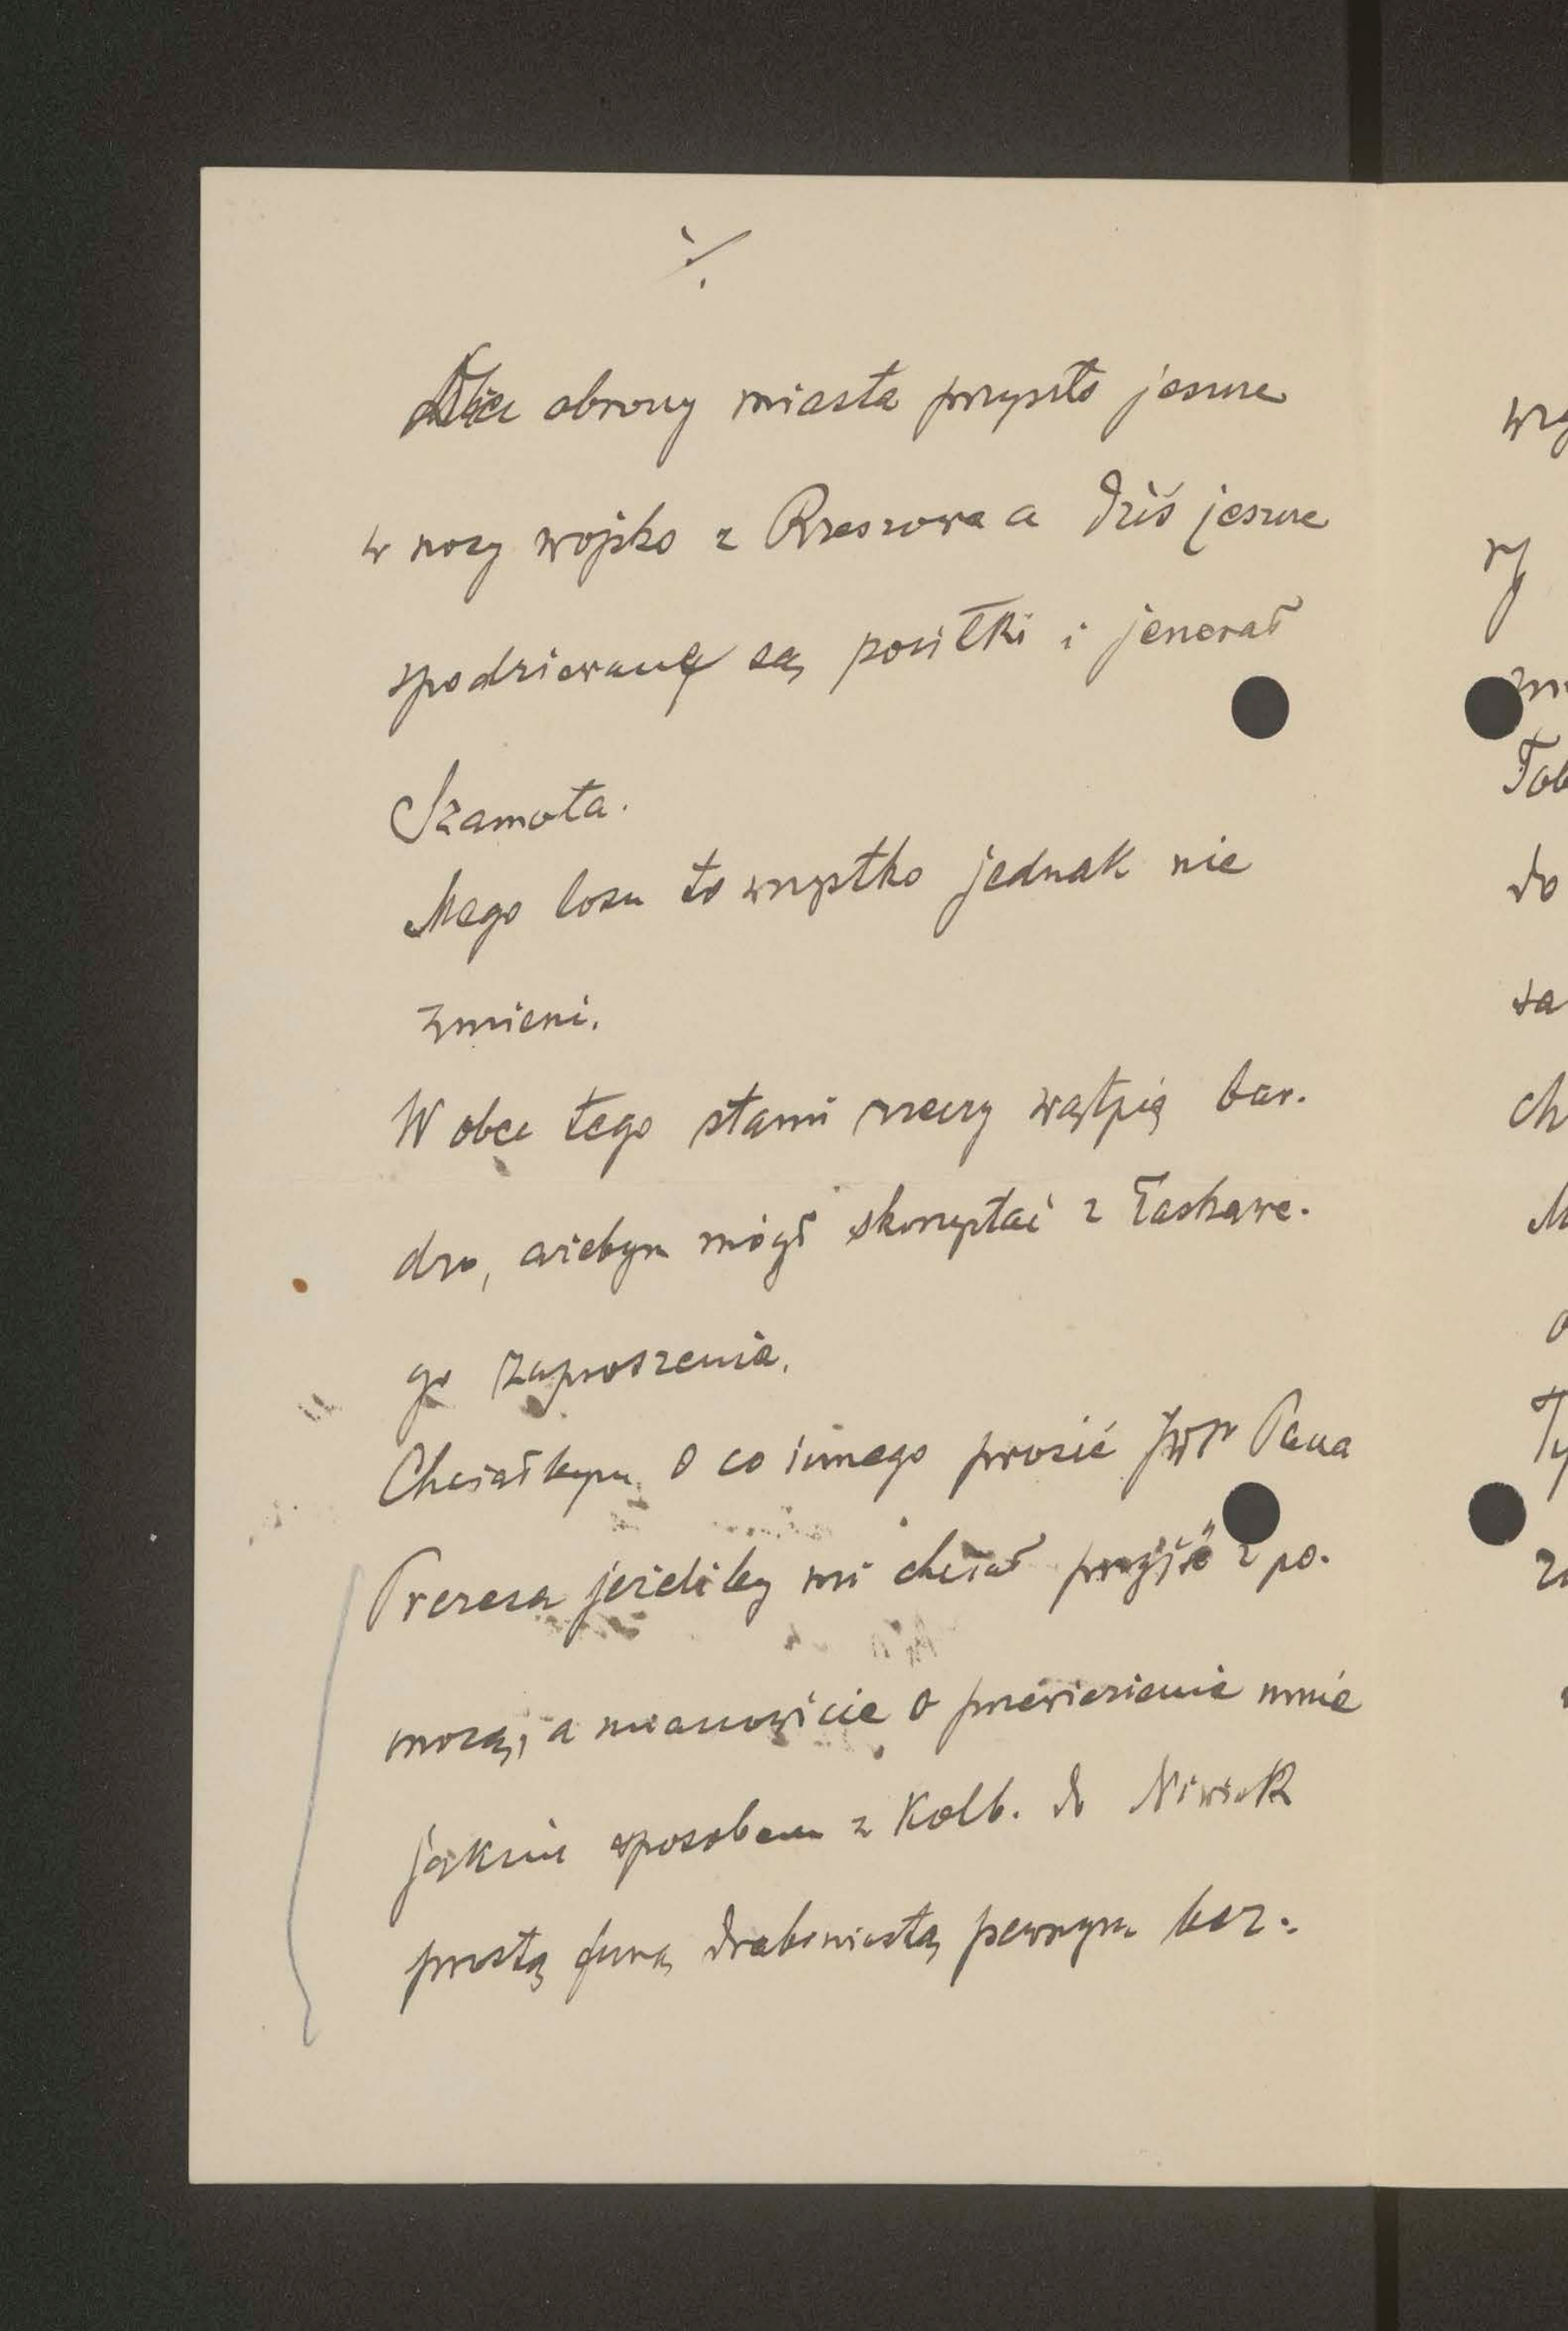 ./.
Dla obrony miasta przyszło jeszcze
w nocy wojsko z Rzeszowa a dziś jeszcze
spodziewane są posiłki i jenerał
Szamota.
Mego losu to wszystko jednak nie
zmieni.
Wobec tego stanu rzeczy wątpię bar-
dzo, ażebym mógł skorzystać z łaskawe-
go zaproszenia.
Chciałbym o co innego prosić JW Pana
Prezesa jeżeliby mi chciał przyjść z po-
mocą, a mianowicie o przewiezienie mnie
jakim sposobem z Kolb. do Niwisk
prostą furą drabiniastą pewnym bez-
wrz
ry
Tob
do
sa
ch